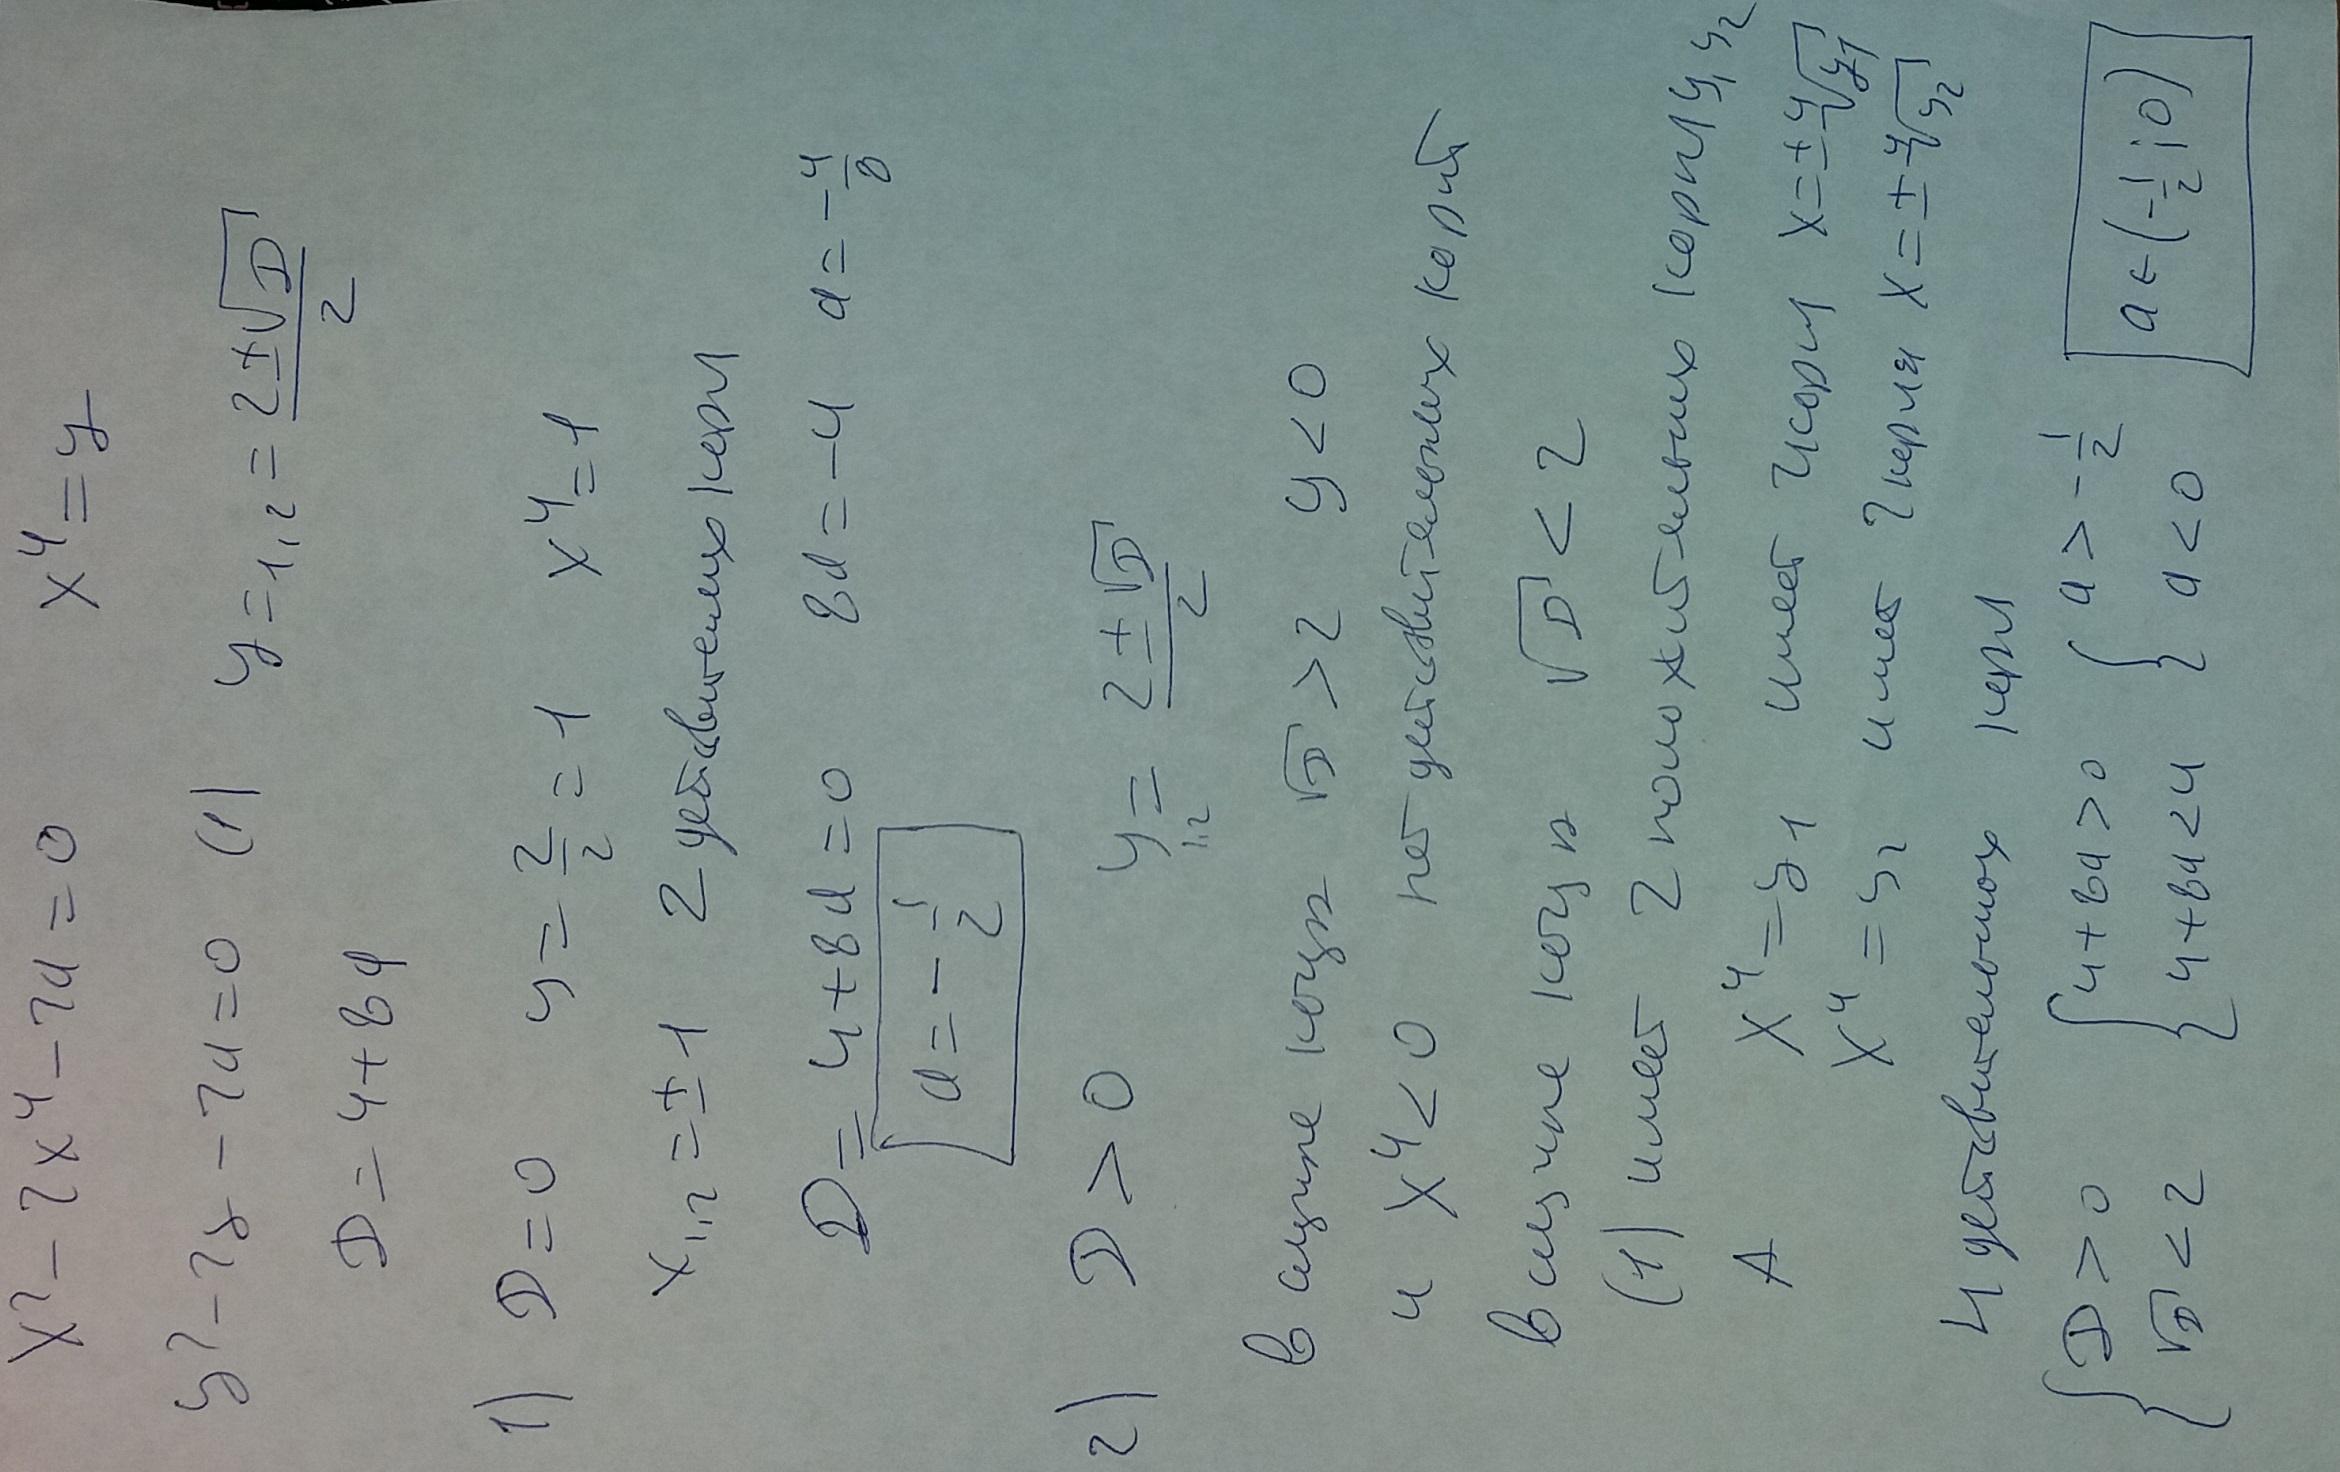 x² - 2x⁴ - 2a = 0 x⁴ = y
y² - 2y - 2a = 0 (1) y = 1,2 = (2 ± √D)/2
D = 4 + 8a
1) D = 0 y = 2/2 = 1 x⁴ = 1
x₁,₂ = ± 1 2 действительных корня
D = 4 + 8a = 0 8a = -4 a = -4/8
a = -1/2
2) D > 0 y₁,₂ = (2 ± √D)/2
В случае когда √D > 2 y < 0
и x⁴ < 0 нет действительных корней
В случае когда √D < 2
(1) имеет 2 положительных корня y₁ y₂
А x⁴ = y₁ имеет 2 корня x = ± ⁴√y₁
x⁴ = y₂ имеет 2 корня x = ± ⁴√y₂
4 действительных корня
{ D > 0 { 4 + 8a > 0 { a > -1/2
{ √D < 2 { 4 + 8a < 4 { a < 0
a ∈ (-1/2; 0)